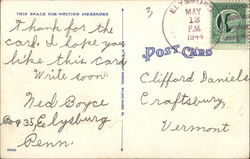 THIS SPACE FOR WRITING MESSAGES
Thank for the
card. I hope you
like this card
Write soon.
Ned Boyce
Box 35, Elysburg
Penn.
ELYSBURG
MAY
13
P.M.
1944
POST CARD
Clifford Daniels
Craftsbury,
Vermont